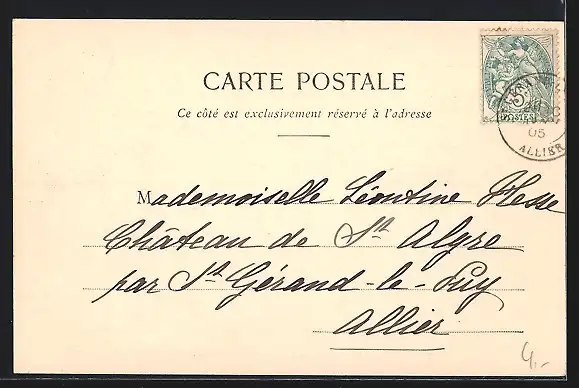 CARTE POSTALE
Ce côté est exclusivement réservé à l'adresse
5c
POSTES
05
ALLIER
Mademoiselle Léontine Hesse
Château de St Algre
par St Gérand-le-Puy
Allier
4.-